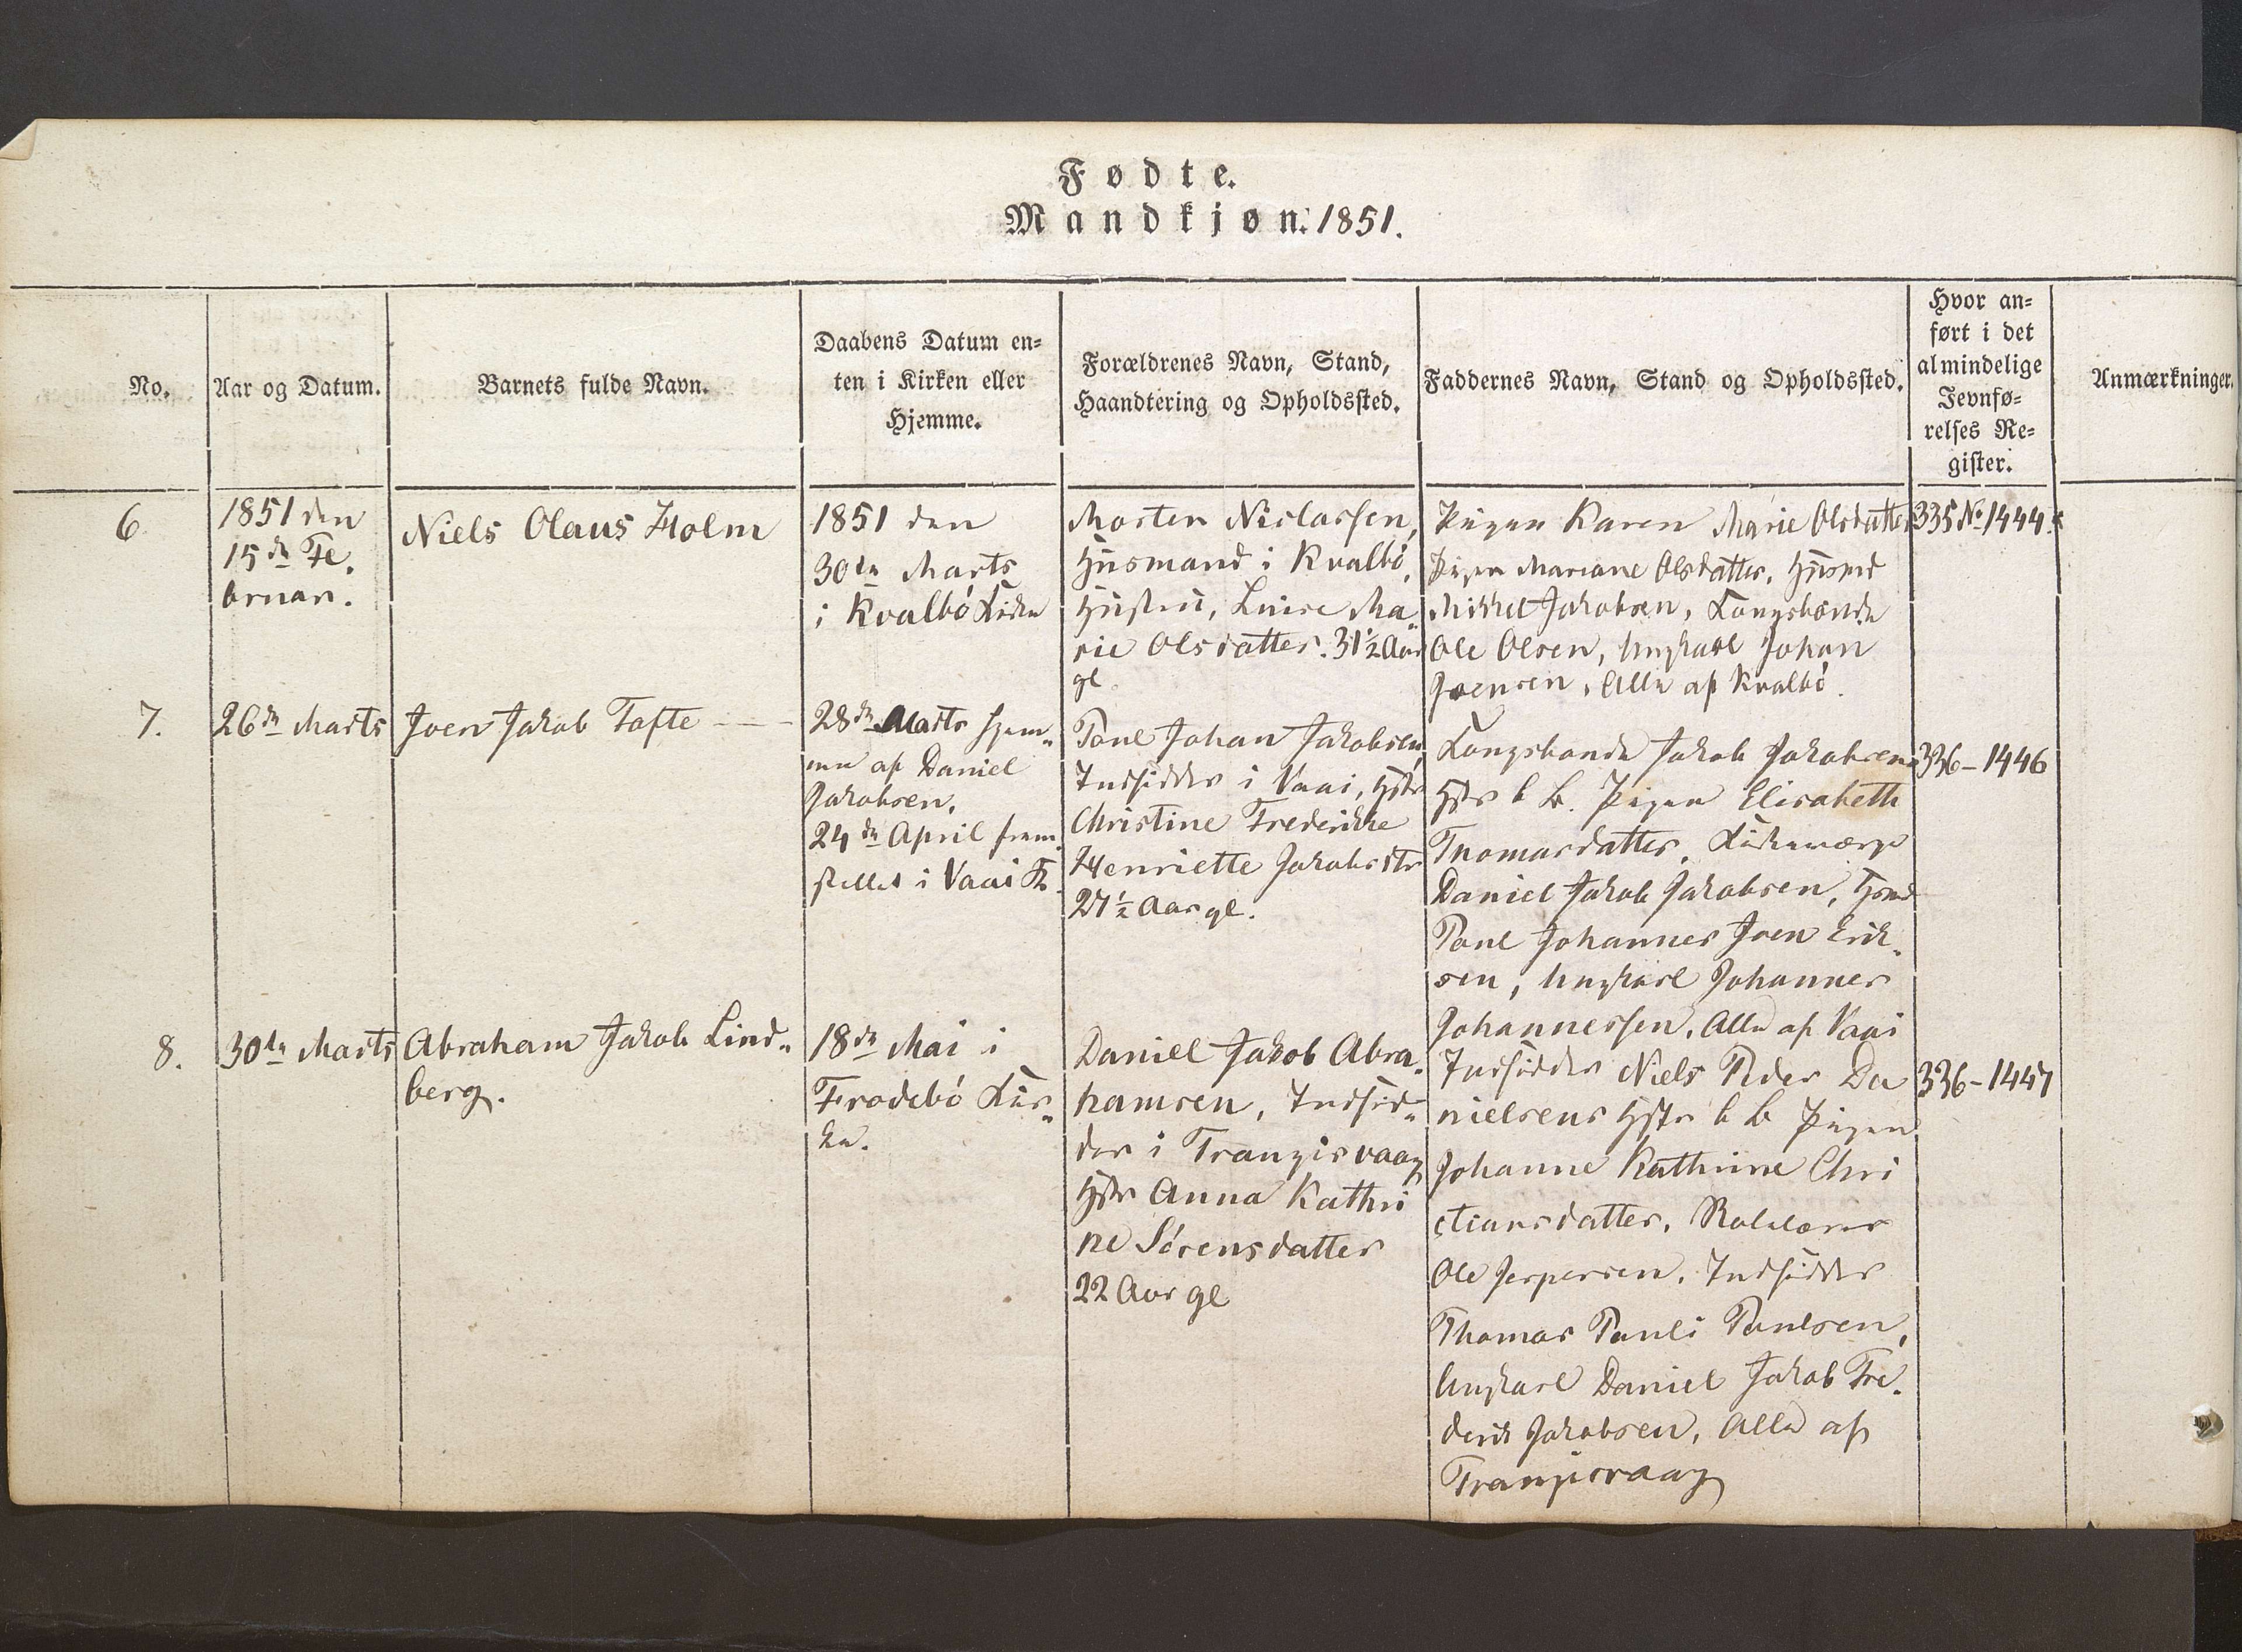 Fødte.
Mandkjøn. 1851.
No.
Aar og Datum.
Barnets fulde Navn.
Daabens Datum en-
ten i Kirken eller
Hjemme.
Forældrenes Navn, Stand,
Haandtering og Opholdssted.
Faddernes Navn, Stand og Opholdssted.
Hvor an-
ført i det
almindelige
Jevnfø-
relses Re-
gister.
Anmærkninger.
6.
1851 den
15de Fe-
bruar.
Niels Olaus Holm
1851 den
30te Marts
i Kvalbö Kirke
Morten Niclassen,
Huusmand i Kvalbö,
Hustru, Luise Ma-
rie Olsdatter. 31½ Aar
gl
Pigen Karen Marie Olsdatter
Pigen Mariane Olsdatter, Huusmd
Mikkel Jakobsen, Kongsbonde
Ole Olsen, Ungkarl Johan
Joensen, Alle af Kvalbö.
335 No 1444.
7.
26de Marts
Joen Jakob Tofte
28de Marts hjem-
me af Daniel
Jakobsen,
24de April frem-
stillet i Vaai K.
Poul Johan Jakobsen,
Indsidder i Vaai, Hstr
Christine Frederikke
Henriette Jakobsdtr
27½ Aar gl.
Kongsbonde Jakob Jakobsens
Hstr b B. Pigen Elisabeth
Thomasdatter, Kirkeværge
Daniel Jakob Jakobsen, Hsmd
Poul Johannes Joen Erik-
sen, Ungkarl Johannes
Johannessen, Alle af Vaai
336-1446
8.
30te Marts
Abraham Jakob Lind-
berg.
18de Mai i
Frodebö Kir-
ke.
Daniel Jakob Abra-
hamsen, Indsid-
der i Trangisvaag
Hstr Anna Kathri
ne Sörensdatter
22 Aar gl
Indsidder Niels Peder Da
nielsens Hstr b B Pigen
Johanne Kathrine Chri
stiansdatter,
Ole Jespersen, Indsidder
Thomas Pauli Poulsen,
Ungkarl Daniel Jakob Fre-
derik Jakobsen, Alle af
Trangisvaag
336-1447